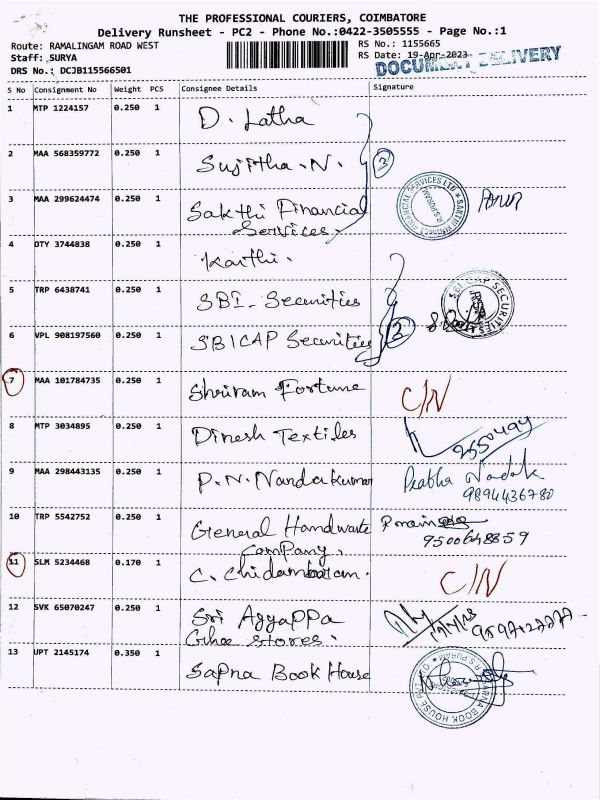 THE PROFESSIONAL COURIERS, COIMBATORE
Delivery Runsheet - PC2 - Phone No.:0422-3505555 - Page No.:1
Route: RAMALINGAM ROAD WEST RS No.: 1155665
Staff: SURYA RS Date: 19-Apr-2023
DRS No.: DCJB115566501 DOCUMENT DELIVERY
S No Consignment No Weight PCS Consignee Details Signature
1 MTP 1224157 0.250 1 D. Latha
2 MAA 568359772 0.250 1 Sujitha.N. 3
3 MAA 299624474 0.250 1 Sakthi Financial
Services.
4 OTY 3744838 0.250 1 Karthi.
5 TRP 6438741 0.250 1 SBI- Securities
SBI CAP SECURITIES
6 VPL 908197560 0.250 1 SBICAP Securities
7 MAA 101784735 0.250 1 Shriram Fortune C/N
8 MTP 3034895 0.250 1 Dinesh Textiles 2550494
9 MAA 298443135 0.250 1 P.N. Nandakumar Prabha
9894436780
10 TRP 5542752 0.250 1 General Handwaste
Company. 9500648859
11 SLM 5234468 0.170 1 C. Chidambaram. C/N
12 SVK 65070247 0.250 1 Sri Ayyappa
Ghee Stores.
13 UPT 2145174 0.350 1 Sapna Book House